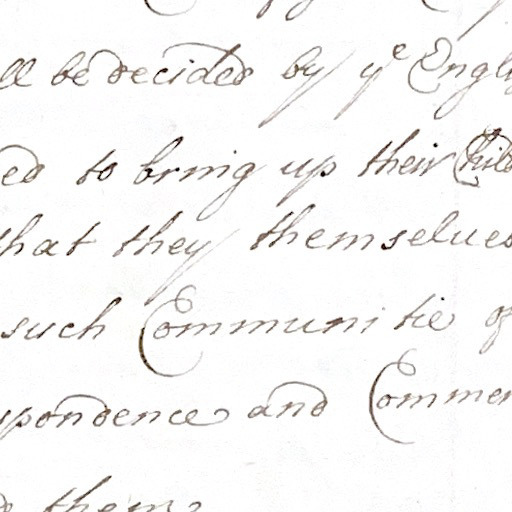 ll be decided by yᵉ Engli
ed to bring up their Child
that they themselues
such Communitie of
spondence and Commer
them